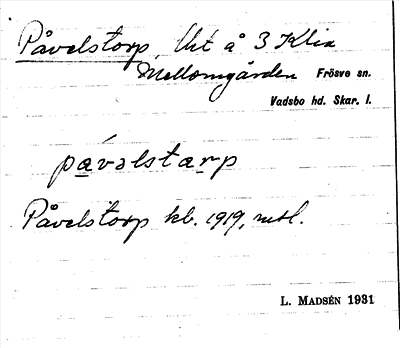 Påvelstorp, lht å 3 Klix
Mellomgården Frösve sn.
Vadsbo hd. Skar. l.
pávəlstarp
Påvelstorp kb. 1919, mtl.
L. MADSÉN 1931